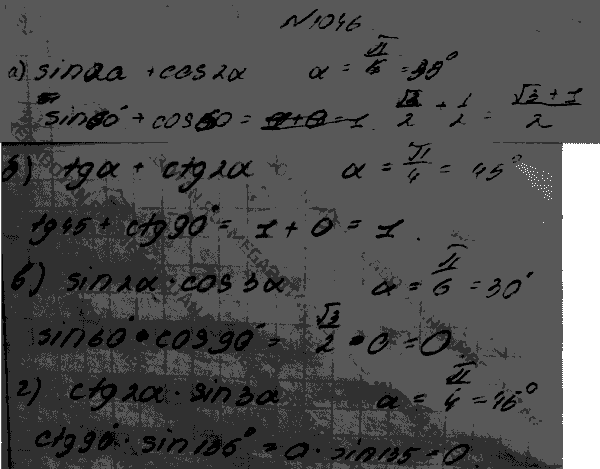 N1046
а) sin2α + cos2α α = π/6 = 30°
sin60° + cos60 = 0+0=1 √3/2 + 1/2 = √3+1/2
б) tgα + ctg2α α = π/4 = 45°
tg45 + ctg90° = 1 + 0 = 1
в) sin2α · cos3α α = π/6 = 30°
sin60° · cos90° = √3/2 · 0 = 0
г) ctg2α · sin3α α = π/4 = 45°
ctg90° · sin135° = 0 · sin135 = 0